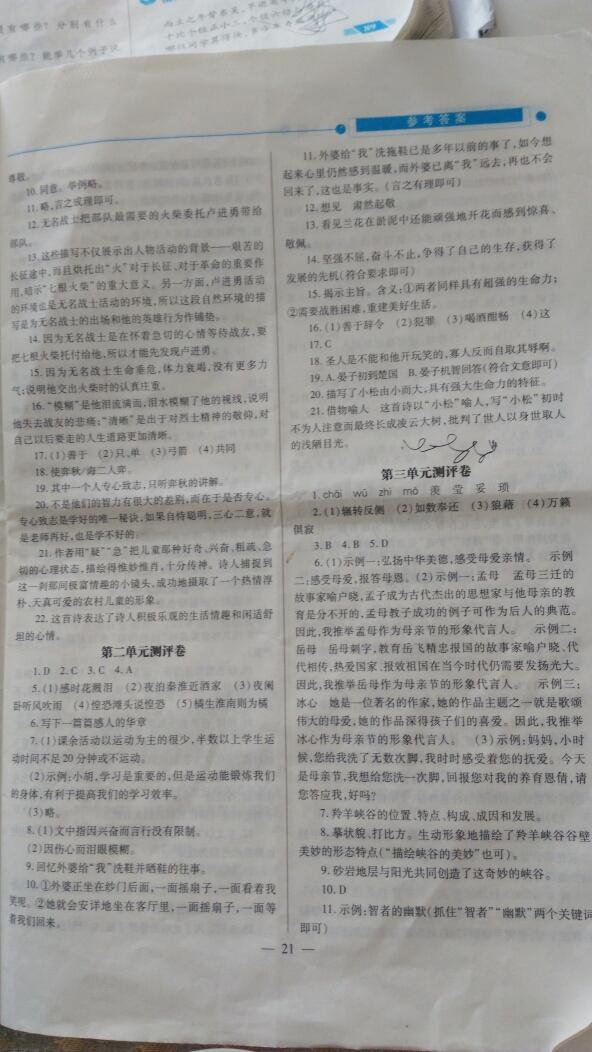 是有哪些？分别有什么
有哪些？能举几个例子说
参考答案
尊敬。
10. 同意。举例略。
11. 略,言之成理即可。
12. 无名战士把部队最需要的火柴委托卢进勇带给
部队。
13. 这些描写不仅展示出人物活动的背景——艰苦的
长征途中,而且烘托出“火”对于长征、对于革命的重要作
用,暗示“七根火柴”的重大意义。另一方面,卢进勇活动
的环境也是无名战士活动的环境,所以这段自然环境的描
写是为无名战士的出场和他的英雄行为作铺垫。
14. 因为无名战士是在怀着急切的心情等待战友,要
把七根火柴托付给他,所以才能先发现卢进勇。
15. 因为无名战士生命垂危,体力衰竭,没有更多力
气;说明他交出火柴时的认真庄重。
16. “模糊”是他泪流满面,泪水模糊了他的视线,说明
他失去战友的悲痛;“清晰”是出于对烈士精神的敬仰,对
自己以后要走的人生道路更加清晰。
17. (1)善于 (2)只,单 (3)弓箭 (4)共同
18. 使弈秋/诲二人弈。
19. 其中一个人专心致志,只听弈秋的讲解。
20. 不是他们的智力有很大的差别,而在于是否专心。
专心致志是学好的唯一秘诀,如果自恃聪明,三心二意,就
是老师再好,也是学不好的。
21. 作者用“疑”“急”把儿童那种好奇、兴奋、粗疏、急
切的心理状态,描绘得惟妙惟肖,十分传神。诗人捕捉到
这一刹那间极富情趣的小镜头,成功地摄取了一个热情淳
朴、天真可爱的农村儿童的形象。
22. 这首诗表达了诗人积极乐观的生活情趣和闲适舒
坦的心情。
第二单元测评卷
1. D 2. C 3. C 4. A
5. (1)感时花溅泪 (2)夜泊秦淮近酒家 (3)夜阑
卧听风吹雨 (4)惶恐滩头说惶恐 (5)橘生淮南则为橘
6. 写下一篇篇感人的华章
7. (1)课余活动以运动为主的很少,半数以上学生运
动时间不足20分钟或不运动。
(2)示例:小胡,学习是重要的,但是运动能锻炼我们
的身体,有利于提高我们的学习效率。
(3)略。
8. (1)文中指因兴奋而言行没有限制。
(2)因伤心而泪眼模糊。
9. 回忆外婆给“我”洗鞋并晒鞋的往事。
10. ①外婆正坐在纱门后面,一面摇扇子,一面看着我
笑呢。②她就会安详地坐在客厅里,一面摇扇子,一面等
着我们回来。
11. 外婆给“我”洗拖鞋已是多年以前的事了,如今想
起来心里仍然感到温暖,而外婆已离“我”远去,再也不会
回来了,这也是事实。(言之有理即可)
12. 想见 肃然起敬
13. 看见兰花在淤泥中还能顽强地开花而感到惊喜、
敬佩。
14. 坚强不屈,奋斗不止,争得了自己的生存,获得了
发展的先机(符合要求即可)
15. 揭示主旨。含义:①两者同样具有超强的生命力;
②需要战胜困难,重建美好生活。
16. (1)善于辞令 (2)犯罪 (3)喝酒酣畅 (4)这
17. C
18. 圣人是不能和他开玩笑的,寡人反而自取其辱啊。
19. A. 晏子初到楚国 B. 晏子机智回答(符合文意即可)
20. 描写了小松由小而大,具有强大生命力的特征。
21. 借物喻人 这首诗以“小松”喻人,写“小松”初时
不为人注意而最终长成凌云大树,批判了世人以身世取人
的浅陋目光。
第三单元测评卷
1. chāi wū zhì mó 羡 莹 妥 琐
2. (1)辗转反侧 (2)如数奉还 (3)狼藉 (4)万籁
俱寂
3. B 4. B 5. D
6. (1)示例一:弘扬中华美德,感受母爱亲情。 示例
二:感受母爱,报答母恩。(2)示例一:孟母 孟母三迁的
故事家喻户晓,孟子成为古代杰出的思想家与他母亲的教
育是分不开的,孟母教子成功的例子可作为后人的典范。
因此,我推举孟母作为母亲节的形象代言人。 示例二:
岳母 岳母刺字,教育岳飞精忠报国的故事家喻户晓、代
代相传,热爱国家、报效祖国在当今时代仍需要发扬光大。
因此,我推举岳母作为母亲节的形象代言人。 示例三:
冰心 她是一位著名的作家,她的作品主题之一就是歌颂
伟大的母爱,她的作品深得孩子们的喜爱。因此,我推举
冰心作为母亲节的形象代言人。 (3)示例:妈妈,小时
候,您给我洗了无数次脚,我时时感受着您的抚爱。今天
是母亲节,我想给您洗一次脚,回报您对我的养育恩情,请
您答应我,好吗?
7. 羚羊峡谷的位置、特点、构成、成因和发展。
8. 摹状貌、打比方。生动形象地描绘了羚羊峡谷谷壁
美妙的形态特点(“描绘峡谷的美妙”也可)。
9. 砂岩地层与阳光共同创造了这奇妙的峡谷。
10. D
11. 示例:智者的幽默(抓住“智者”“幽默”两个关键词
即可)
— 21 —